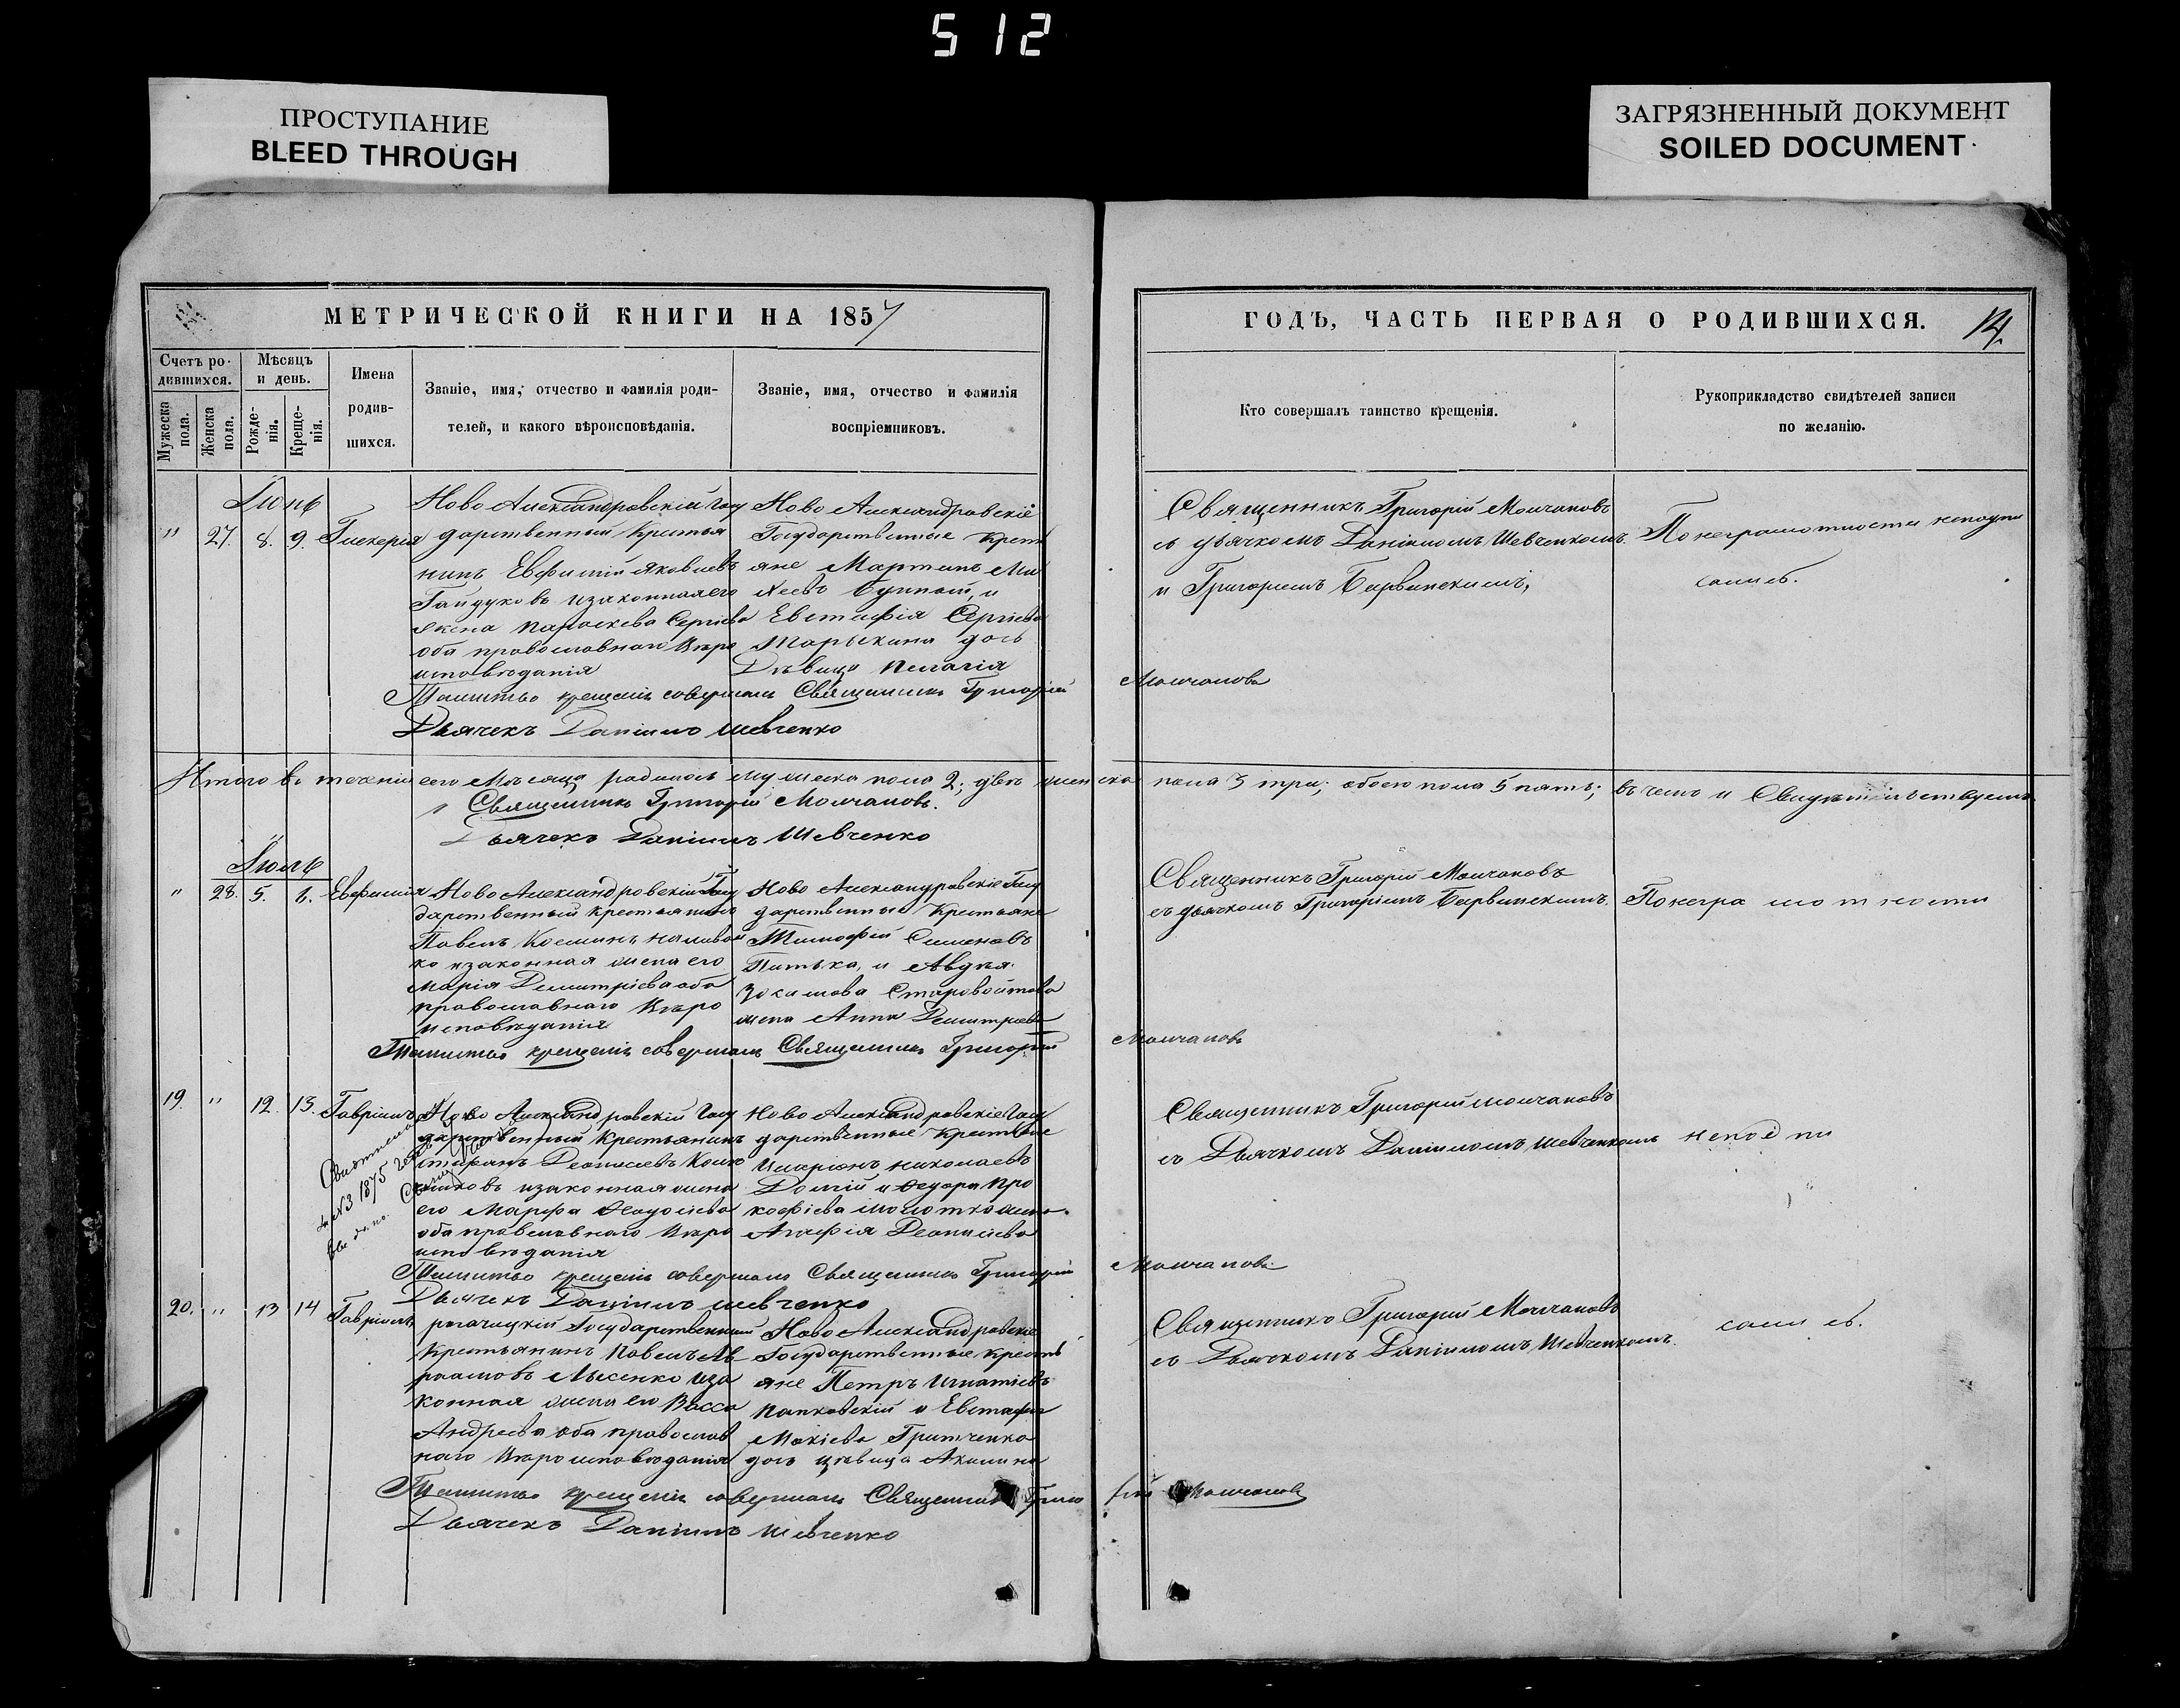 512
ПРОСТУПАНИЕ
BLEED THROUGH
ЗАГРЯЗНЕННЫЙ ДОКУМЕНТ
SOILED DOCUMENT
МЕТРИЧЕСКОЙ КНИГИ НА 1857
Счетъ ро-
дившихся.
Мужеска
пола.
Женска
пола.
Мѣсяцъ
и день.
Рожде-
нія.
Креще-
нія.
Имена
родив-
шихся.
Званіе, имя, отчество и фамилія роди-
телей, и какого вѣроисповѣданія.
Званіе, имя, отчество и фамилія
воспріемниковъ.
ГОДЪ, ЧАСТЬ ПЕРВАЯ О РОДИВШИХСЯ.
14.
Кто совершалъ таинство крещенія.
Рукоприкладство свидѣтелей записи
по желанію.
Іюнь
" 27. 8. 9. Гликерія
Ново Александровскій Госу
дарственный Крестья
нинъ Евфимій Яковлевъ
Гайдуковъ изаконнаяего
жена Параскева Сергіева
оба православнаго Вѣро
исповѣданія
Ново Александровскіе
Государственные Крестья
яне Мартинъ
и
Евстафія Сергіева
дочь
Дѣвица Пелагія
Священникъ Григорій Молчановъ
съ дьячкомъ Даніиломъ Шевченкомъ
и Григоріемъ Барвинскимъ,
Понеграмотности неподпи
сались.
Таинство крещенія совершалъ Священникъ Григорій Молчановъ
Дьячекъ Даніилъ Шевченко
Итого въ теченіи сего Мѣсяца родилось мужеска пола 2; двѣ женска пола 3 три; обоего пола 5 пять; въ чемъ и Свидѣтельствуемъ
Священникъ Григорій Молчановъ.
Дьячекъ Даніилъ Шевченко
Іюль
" 28. 5. 6. Евфимія
Ново Александровскій Госу
дарственный крестьянинъ
Павелъ Косминъ Наливай
ко изаконная жена его
Марія Димитріева оба
православнаго Вѣро
исповѣданія
Ново Александровскіе Госу
дарственные Крестьяне
Тимофій Симеоновъ
и Авдѣя
Зосимова Старовойтова
жена Анна Димитріева
Священникъ Григорій Молчановъ
съ дьячкомъ Григоріемъ Барвинскимъ.
Понегра мот ности
Таинство крещенія совершалъ Священникъ Григорій Молчановъ
19. " 12. 13. Гавріилъ
Ново Александровскій Госу
дарственный Крестьянинъ
изаконная жена
его Марфа
оба православнаго Вѣро
исповѣданія
№3 1875 года
Ново Александровскіе Госу
дарственные Крестьяне
Иларіонъ Николаевъ
Долгій и Ѳедора Про
кофіева жена
Агафія Деонисіева
Священникъ Григорій Молчановъ
съ Дьячкомъ Даніиломъ Шевченкомъ
неподпи
Таинство крещенія совершалъ Священникъ Григорій Молчановъ
Дьячекъ Даніилъ Шевченко
20. " 13 14 Гавріилъ
рогачицкій Государственный
Крестьянинъ Павелъ Ав
раамовъ Лысенко иза
конная жена его Васса
Андреева оба православ
наго Вѣроисповѣданія
Ново Александровскіе
Государственные кресть
яне Петръ Игнатіевъ
и Евстафія
Мокіева Гритченко
дочь дѣвица Акилина
Священникъ Григорій Молчановъ
съ Дьячкомъ Даніиломъ Шевченкомъ.
сали сь.
Таинство крещенія совершалъ Священникъ Григорій Молчановъ
Дьячекъ Даніилъ Шевченко